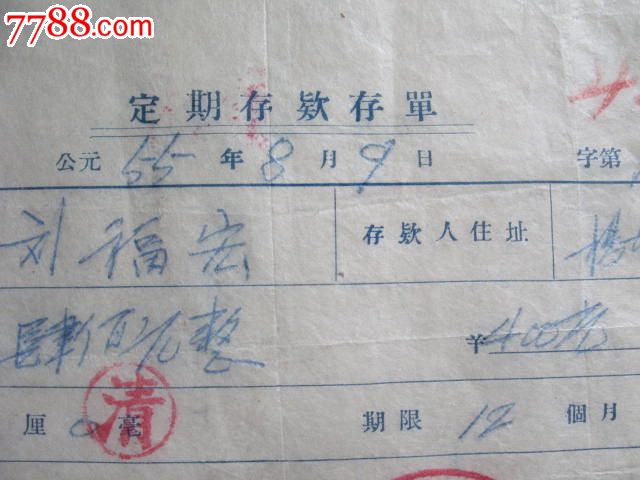 7788.com
定期存欵存單
公元 55 年 8 月 9 日 字第
刘福宏 存欵人住址
肆佰元整 ¥400元
厘 0 毫 清 期限 12 個月